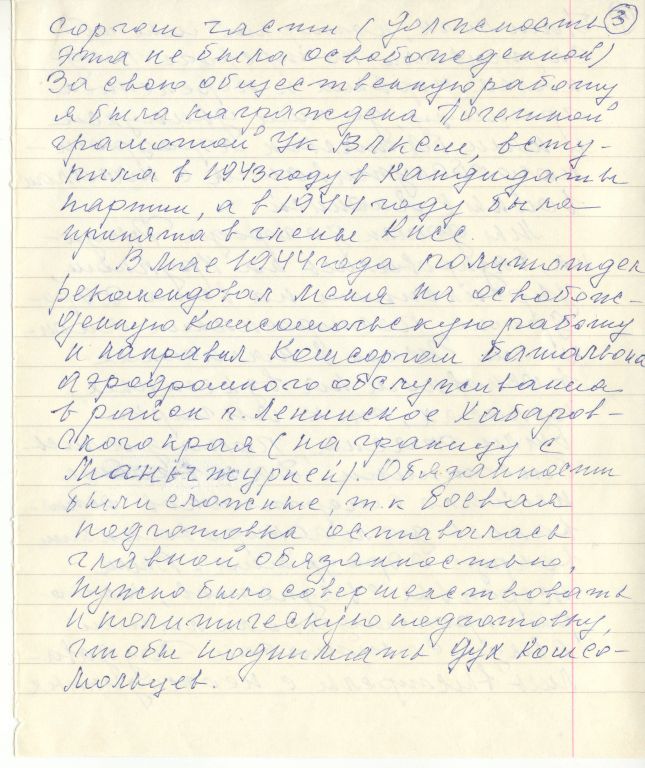 соргом части (должность 3
эта не была освобожденной)
За свою общественную работу
я была награждена "Почетной
грамотой" ЦК ВЛКСМ, всту-
пила в 1943 году в кандидаты
партии, а в 1944 году была
принята в члены КПСС.
В мае 1944 года политотдел
рекомендовал меня на освобож-
денную комсомольскую работу
и направил комсоргом батальона
аэродромного обслуживания
в район г. Ленинское Хабаров-
ского края (на границу с
Маньчжурией). Обязанности
были сложные, т.к боевая
подготовка оставалась
главной обязанностью,
нужно было совершенствовать
и политическую подготовку,
чтобы поднимать дух комсо-
мольцев.